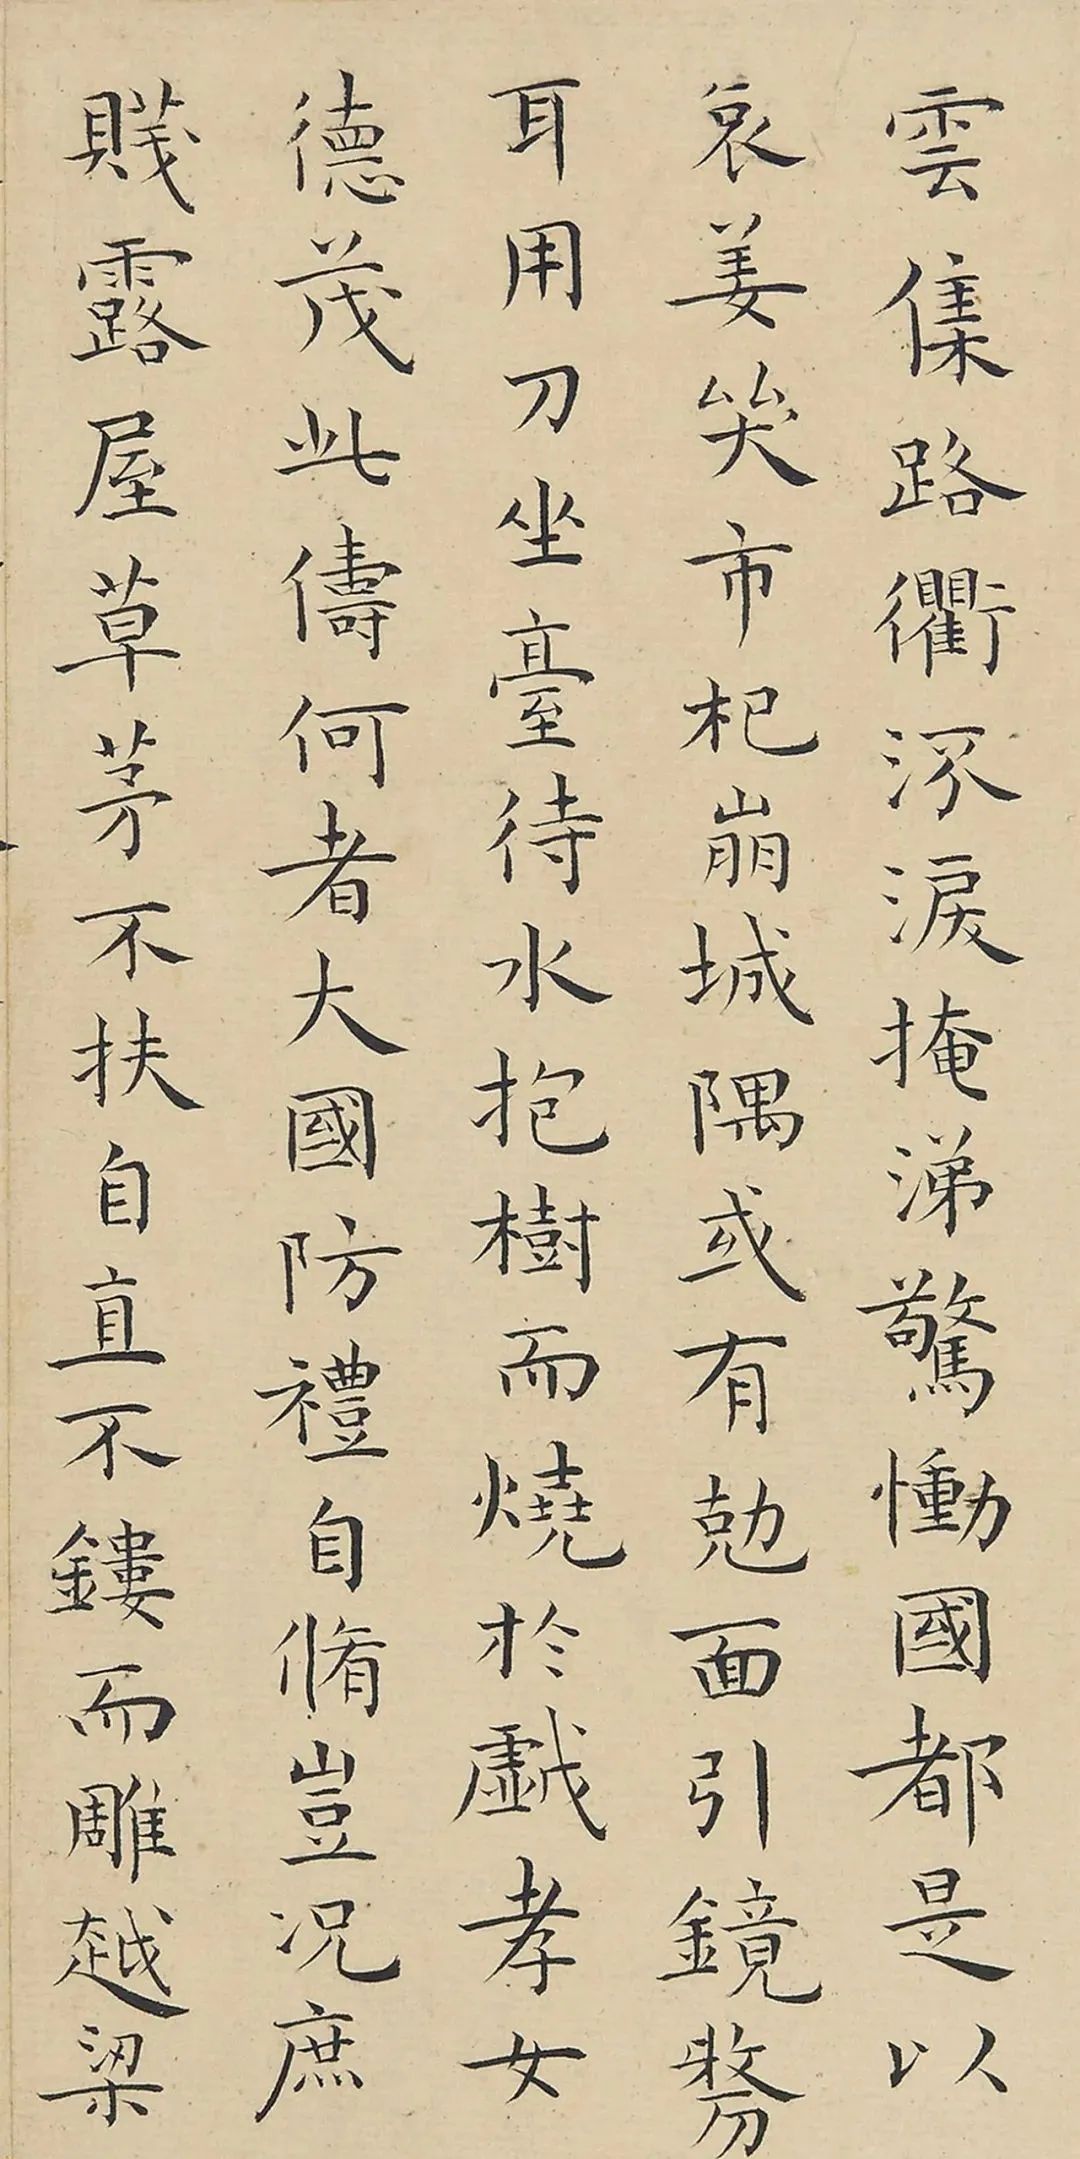 雲集路衢流淚掩涕驚慟國都是以
哀姜哭市杞崩城隅或有勊面引鏡剺
耳用刀坐臺待水抱樹而燒於戲孝女
德茂此儔何者大國防禮自脩豈況庶
賤露屋草茅不扶自直不鏤而雕越梁